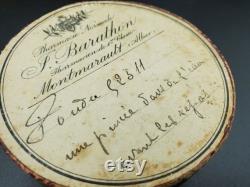 Pharmacie Normale
F. Barathon
Pharmacien de 1re Classe
Montmarault (Allier)
Poudre 52311
une pincée dans de l'eau
avant les repas